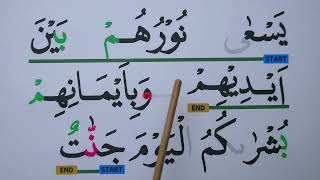 يَسْعٰى نُوْرُهُمْ بَيْنَ
START
اَيْدِيْهِمْ وَبِاَيْمَانِهِمْ
END
بُشْرٰىكُمُ الْيَوْمَ جَنّٰتٌ
END START